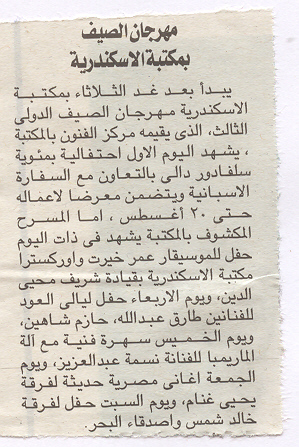 مهرجان الصيف
بمكتبة الاسكندرية
يبدأ بعد غد الثلاثاء بمكتبة
الاسكندرية مهرجان الصيف الدولى
الثالث، الذى يقيمه مركز الفنون بالمكتبة
، يشهد اليوم الاول احتفالية بمئوية
سلفادور دالى بالتعاون مع السفارة
الاسبانية ويتضمن معرضا لاعماله
حتى ٢٠ أغسطس ، اما المسرح
المكشوف بالمكتبة يشهد فى ذات اليوم
حفل للموسيقار عمر خيرت واوركسترا
مكتبة الاسكندرية بقيادة شريف محيى
الدين، ويوم الاربعاء حفل ليالى العود
للفنانين طارق عبدالله، حازم شاهين،
ويوم الخميس سهرة فنية مع آلة
الماريمبا للفنانة نسمة عبدالعزيز، ويوم
الجمعة اغانى مصرية حديثة لفرقة
يحيى غنام، ويوم السبت حفل لفرقة
خالد شمس واصدقاء البحر.